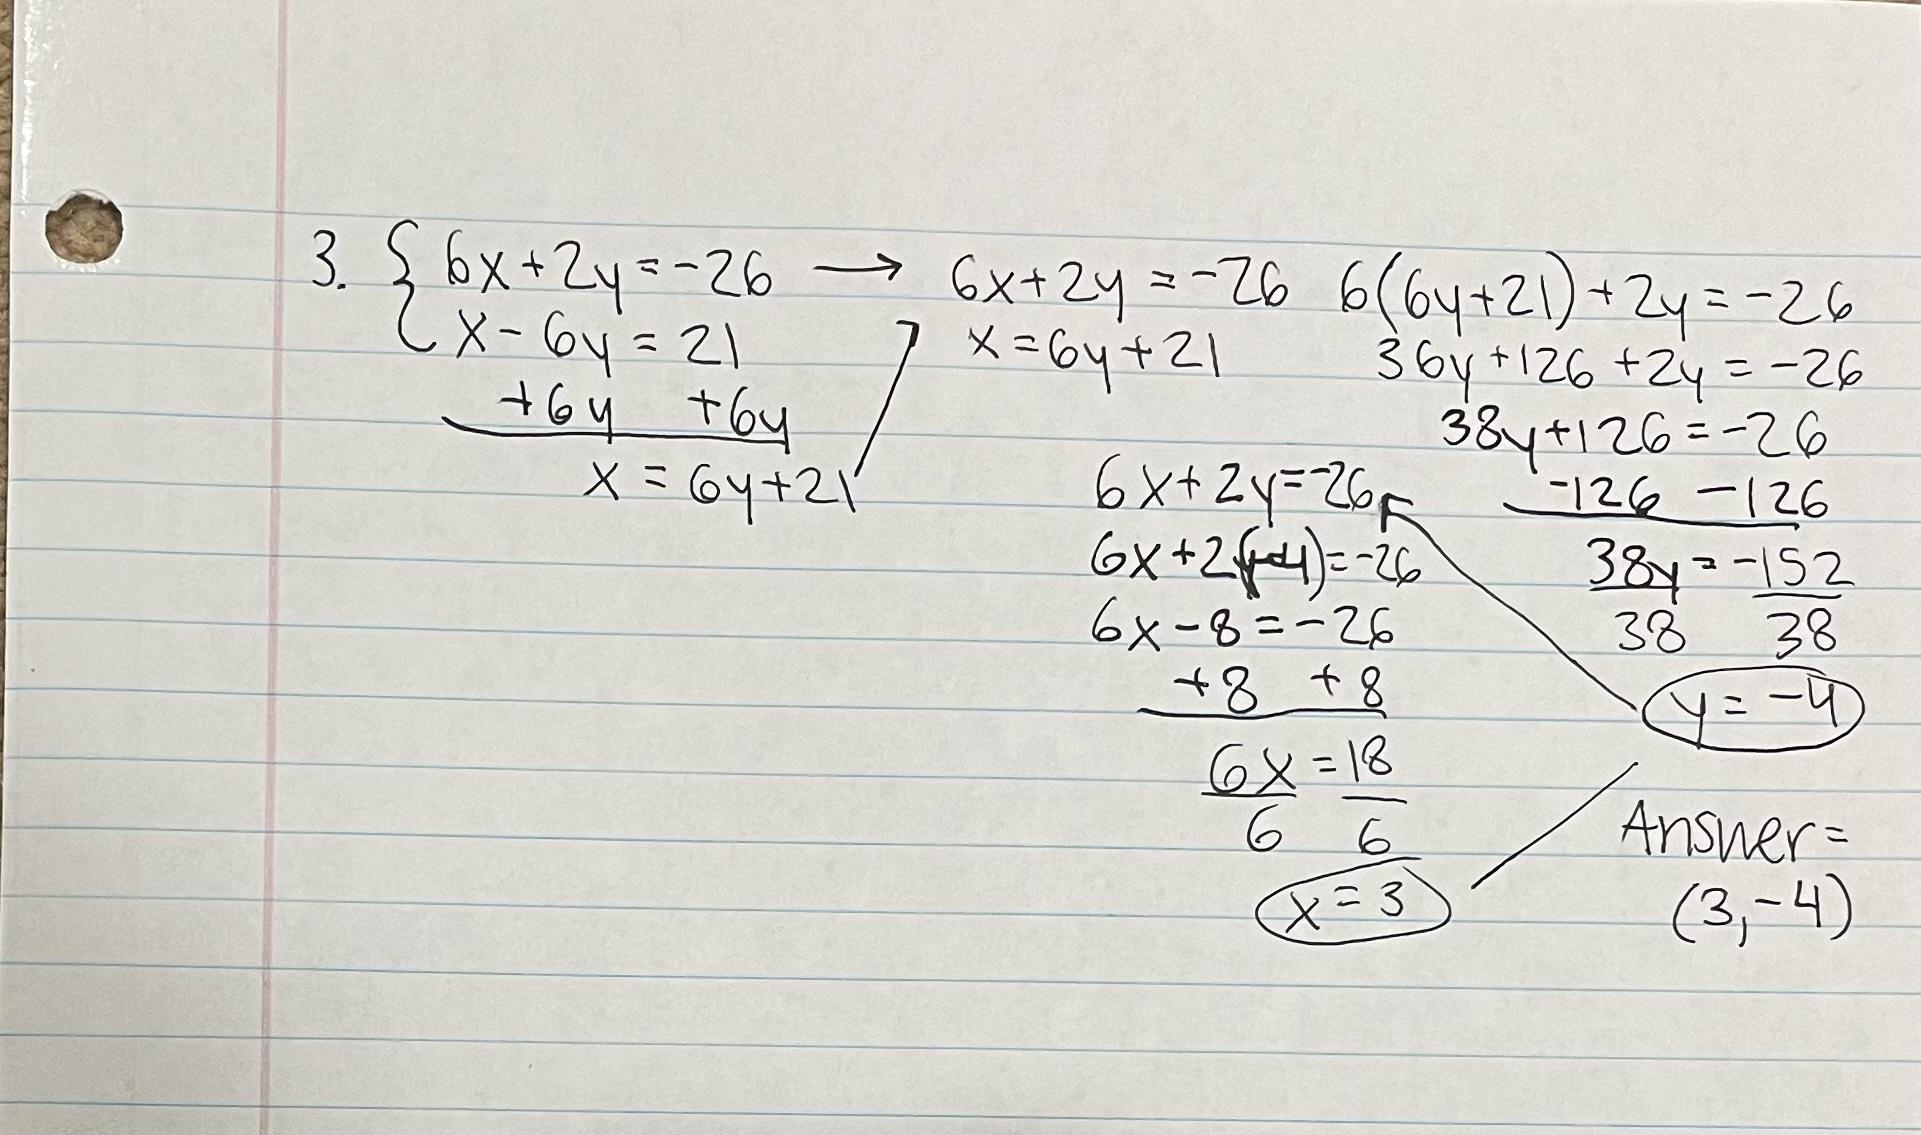 3. { 6x+2y=-26 →
x-6y=21
+6y +6y
x=6y+21
6x+2y=-26
x=6y+21
6(6y+21)+2y=-26
36y+126+2y=-26
38y+126=-26
-126 -126
38y=-152
38 38
y=-4
6x+2y=-26
6x+2(-4)=-26
6x-8=-26
+8 +8
6x=18
6 6
x=3
Answer=
(3,-4)